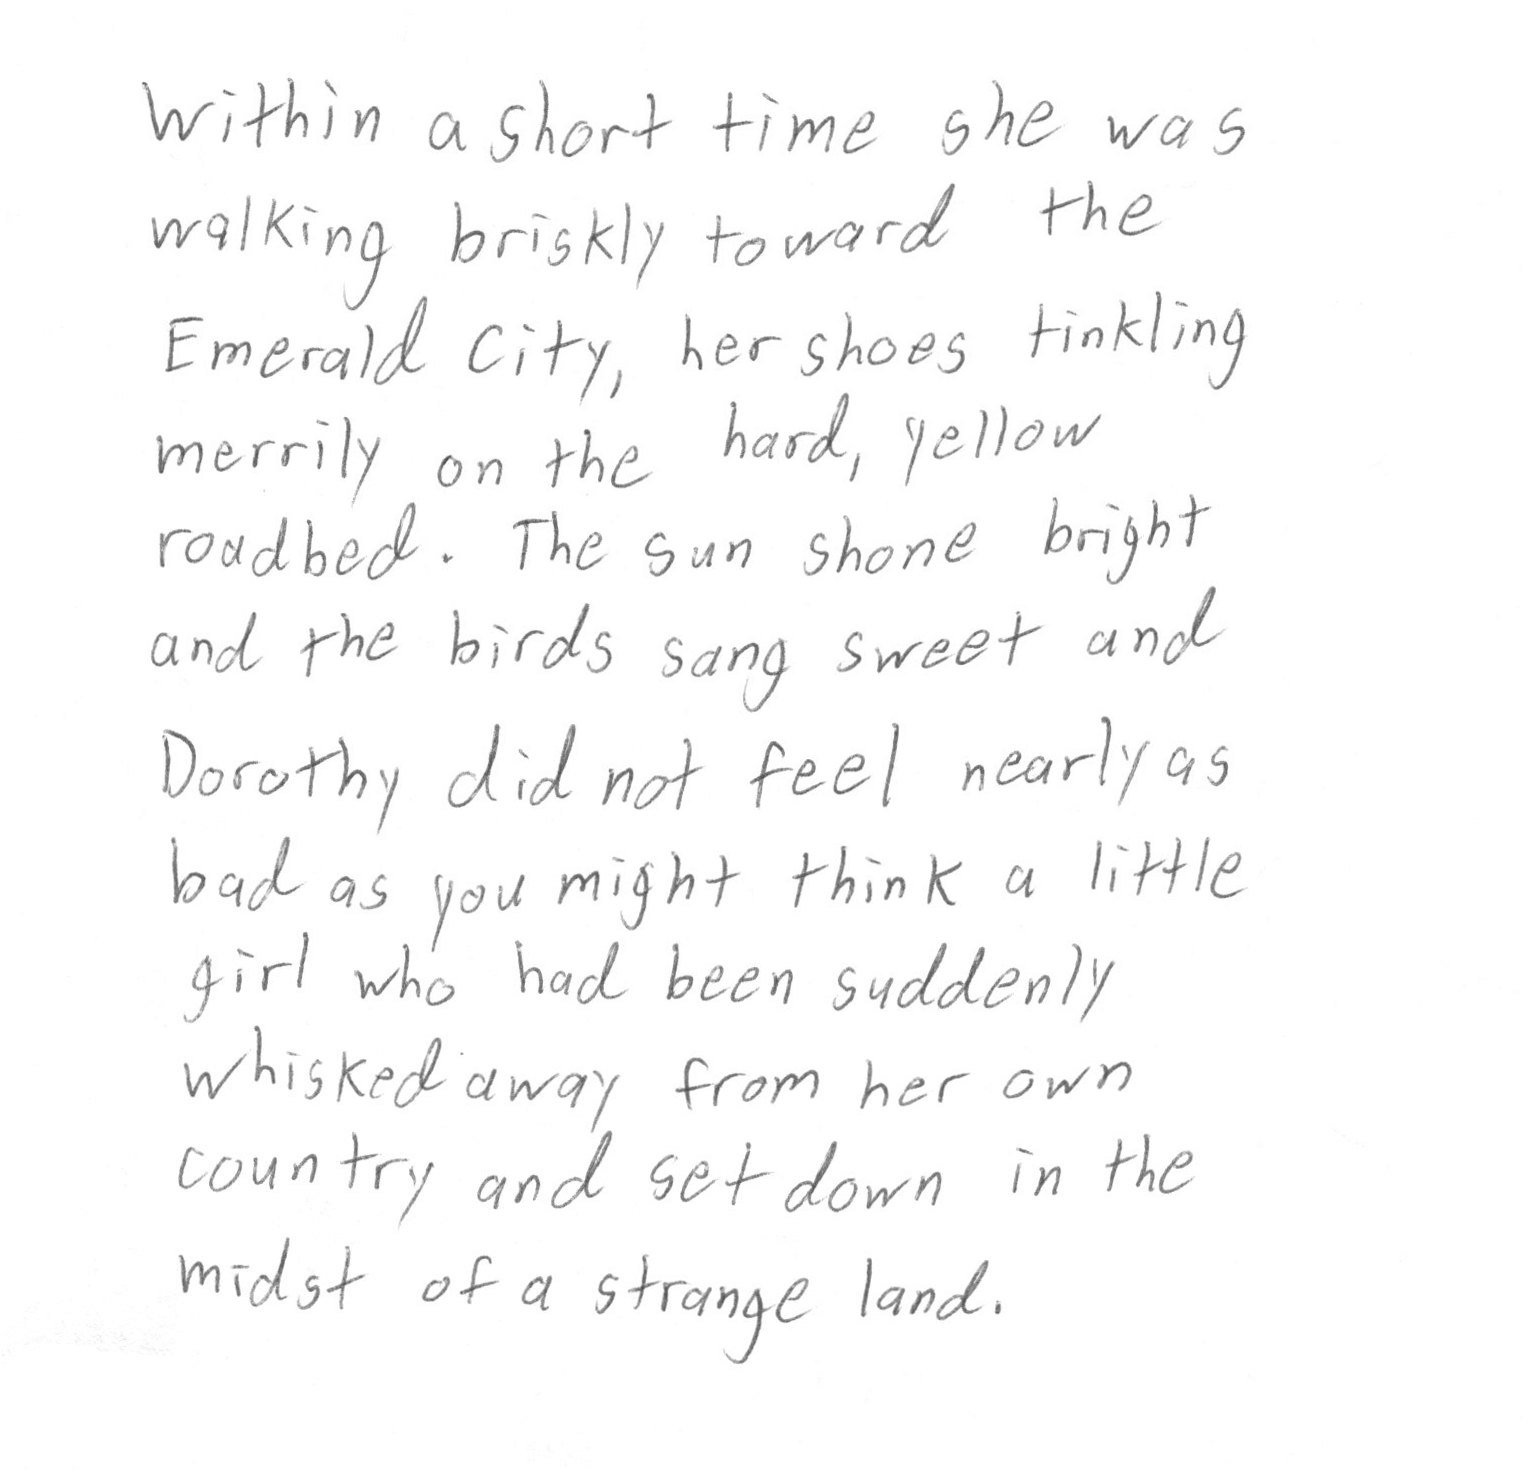 Within a short time she was
walking briskly toward the
Emerald City, her shoes tinkling
merrily on the hard, yellow
roadbed. The sun shone bright
and the birds sang sweet and
Dorothy did not feel nearly as
bad as you might think a little
girl who had been suddenly
whisked away from her own
country and set down in the
midst of a strange land.